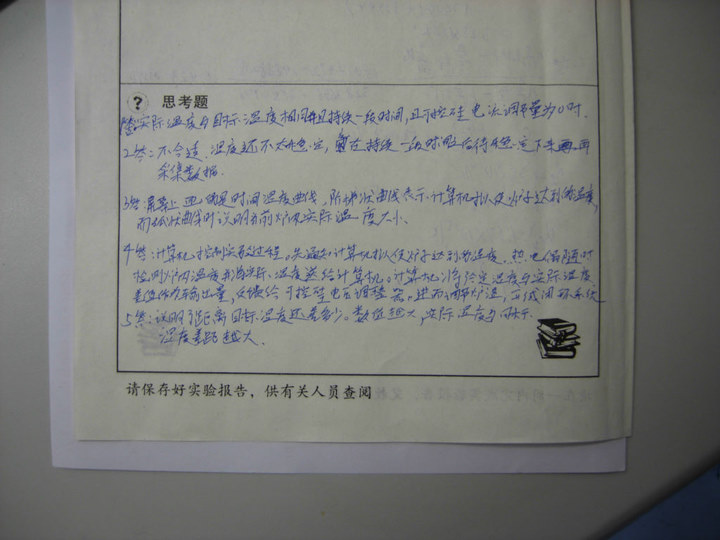 ? 思考题
答:实际温度与目标温度相同并且持续一段时间,且可控硅电流调节量为0时.
2.答:不合适.温度还不太稳定,要在持续一段时间后待稳定下来再
采集数据.
3答:屏幕上 是时间温度曲线,阶梯状曲线表示计算机拟使炉子达到的温度
而 状曲线则说明当前炉内实际温度大小.
4答:计算机控制实验过程。先 计算机拟使炉子达到的温度.热电偶随时
检测炉内温度并将实际温度送给计算机。计算机将给定温度与实际温度
差值作为输出量,反馈给可控硅电压调整器。进而调节炉温,形成闭环系统
5答:说明了距离目标温度还差多少。数值越大,实际温度与目标
温度差距越大.
请保存好实验报告,供有关人员查阅